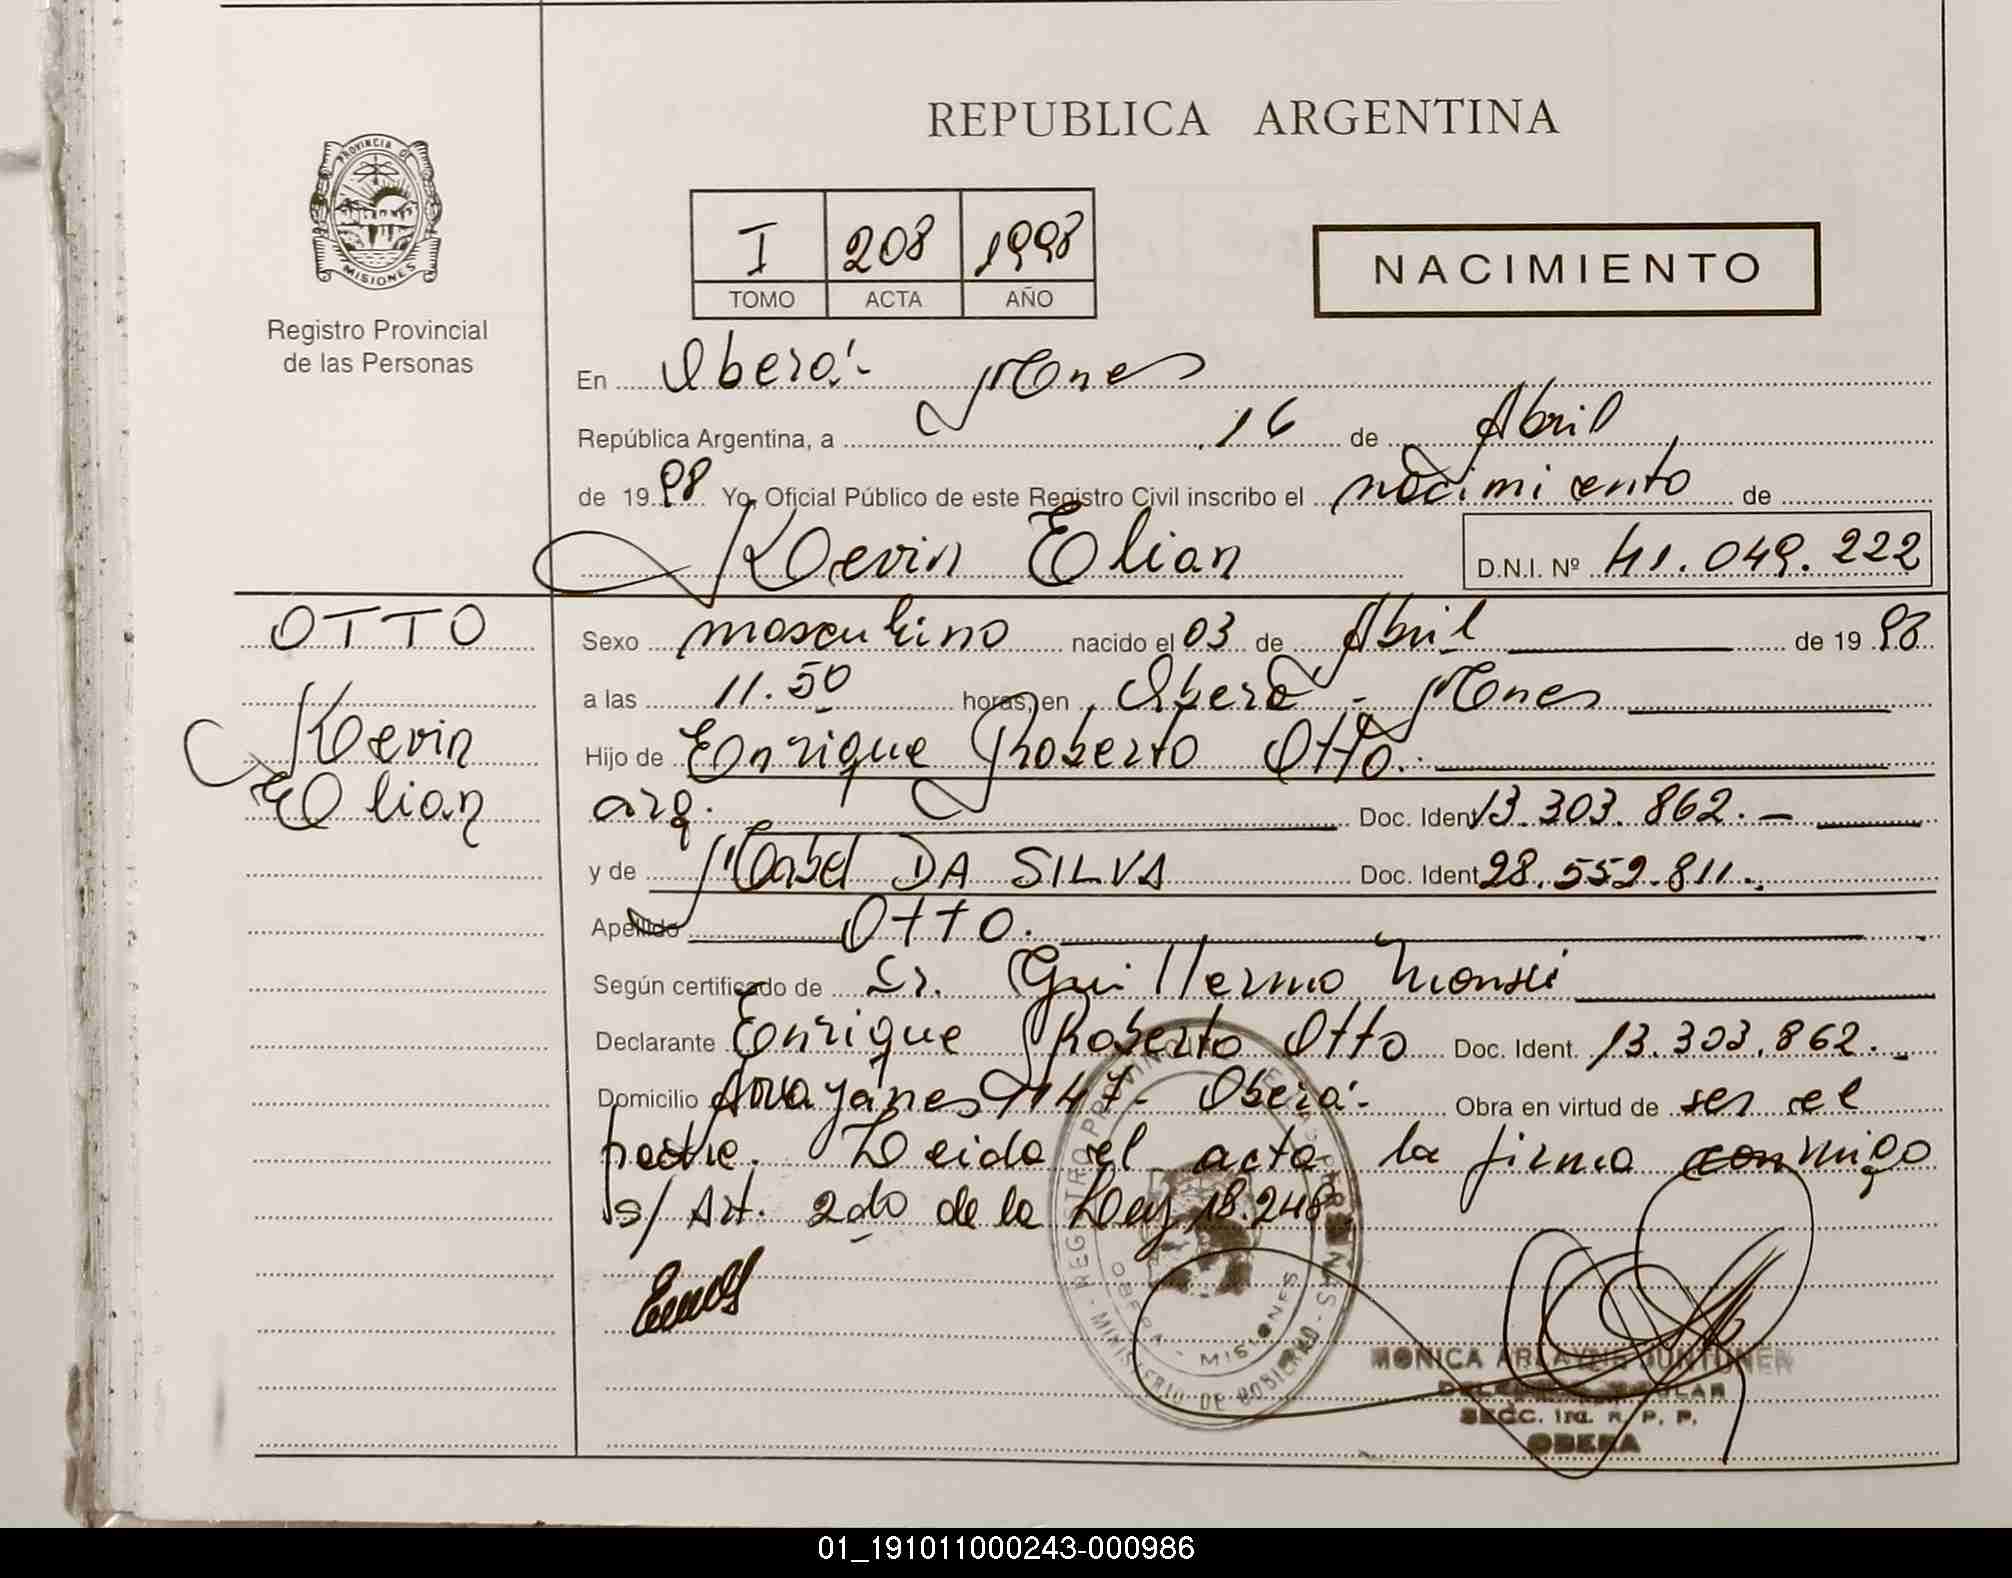 REPUBLICA ARGENTINA
PROVINCIA DE
MISIONES
Registro Provincial
de las Personas
I 208 1998
TOMO ACTA AÑO
NACIMIENTO
En Oberá.- Mnes
República Argentina, a 16 de Abril
de 1998 Yo, Oficial Público de este Registro Civil inscribo el nacimiento de
Kevin Elian D.N.I. Nº 41.049.222
OTTO
Kevin
Elian
Sexo masculino nacido el 03 de Abril de 1998
a las 11.50 horas, en Oberá - Mnes
Hijo de Enrique Roberto Otto.
arg. Doc. Ident 13.303.862.-
y de Mabel DA SILVA Doc. Ident 28.552.811.
Apellido OTTO.
Según certificado de Dr. Guillermo
Declarante Enrique Roberto Otto Doc. Ident. 13.303.862.-
Domicilio Arrayanes 1147- Oberá- Obra en virtud de ser el
padre. Leida el acta la firma conmigo
s/ Art. 2do de la Ley 18.248
REGISTRO PROVINCIAL DE LAS PERSONAS
OBERA - MISIONES
MINISTERIO DE GOBIERNO
MONICA
SECC. 1ra. R. P. P.
OBERA
01_191011000243-000986